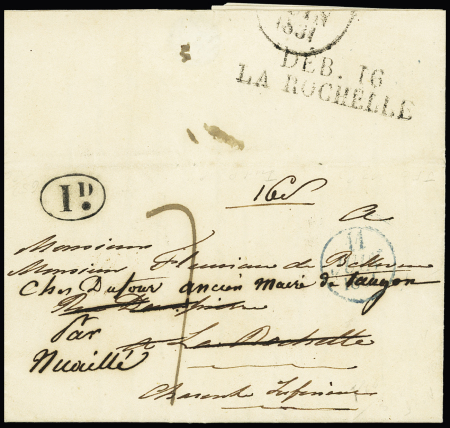 JUIN
1831
DEB. 16
LA ROCHELLE
1D.
168
A
7
11
Monsieur
Monsieur Fleuriau de Bellevue
Chez Dufour ancien maire de Saujon
Par
Nuaillé
à La Rochelle
Charente Inférieure